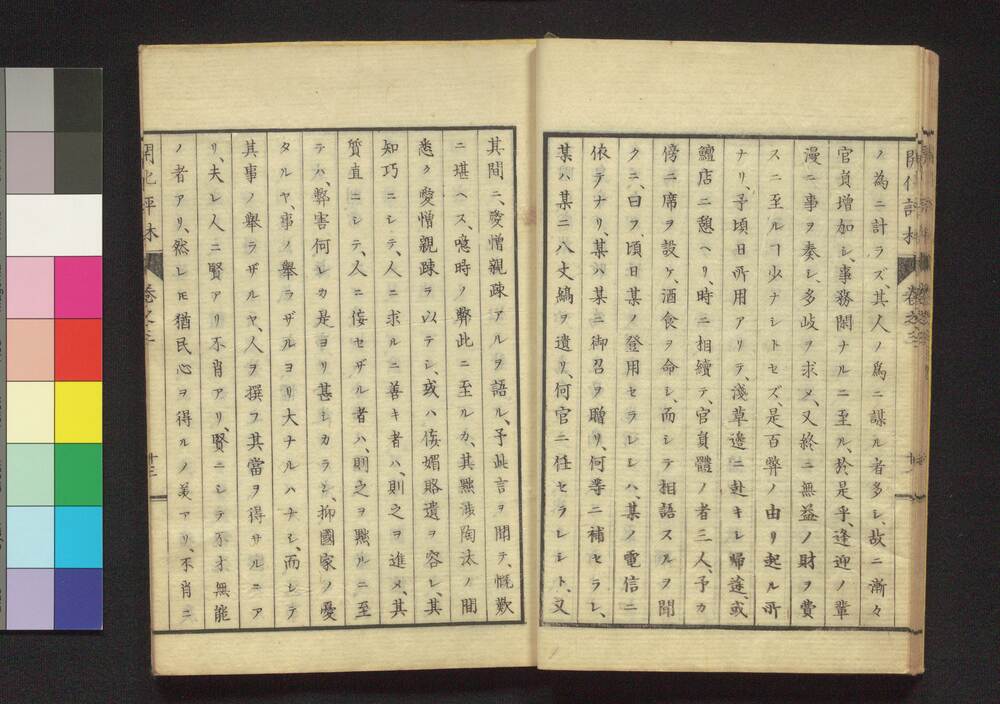 ノ為ニ計ラズ、其人ノ為ニ謀ル者多シ、故ニ漸々
官員増加シ、事務閑ナルニ至ル、於是乎、逢迎ノ輩
漫ニ事ヲ奏シ、多岐ヲ求メ、又終ニ無益ノ財ヲ費
スニ至ルヿ少ナシトセズ、是百弊ノ由リ起ル所
ナリ、予頃日所用アリテ、淺草邉ニ赴キシ帰途、或
鱣店ニ憩ヘリ、時ニ相續テ、官員體ノ者三人、予カ
傍ニ席ヲ設ケ、酒食ヲ命シ、而シテ相語スルヲ聞
クニ、曰フ、頃日某ノ登用セラレシハ、某ノ電信ニ
依テナリ、某ハ某ニ御召ヲ贈リ、何等ニ補セラレ、
某ハ某ニ八丈縞ヲ遺リ、何官ニ任セラレシト、又
開化評林
卷之三
其間ニ、愛憎親疎アルヲ語ル、予此言ヲ聞テ、慨歎
ニ堪ヘス、噫時ノ弊此ニ至ルカ、其黜陟陶汰ノ間
悉ク愛憎親疎ヲ以テシ、或ハ侫媚賂遺ヲ容レ、其
知巧ニシテ、人ニ求ルニ善キ者ハ、則之ヲ進メ、其
質直ニシテ、人ニ侫セザル者ハ、則之ヲ黜ルニ至
テハ、弊害何レカ是ヨリ甚シカラン、抑國家ノ憂
タルヤ、事ノ舉ラザルヨリ大ナルハナシ、而シテ
其事ノ舉ラザルヤ、人ヲ撰フ其當ヲ得サルニア
リ、夫レ人ニ賢アリ不肖アリ、賢ニシテ不才無能
ノ者アリ、然レㇳモ猶民心ヲ得ルノ美アリ、不肖ニ
開化評林
卷之三